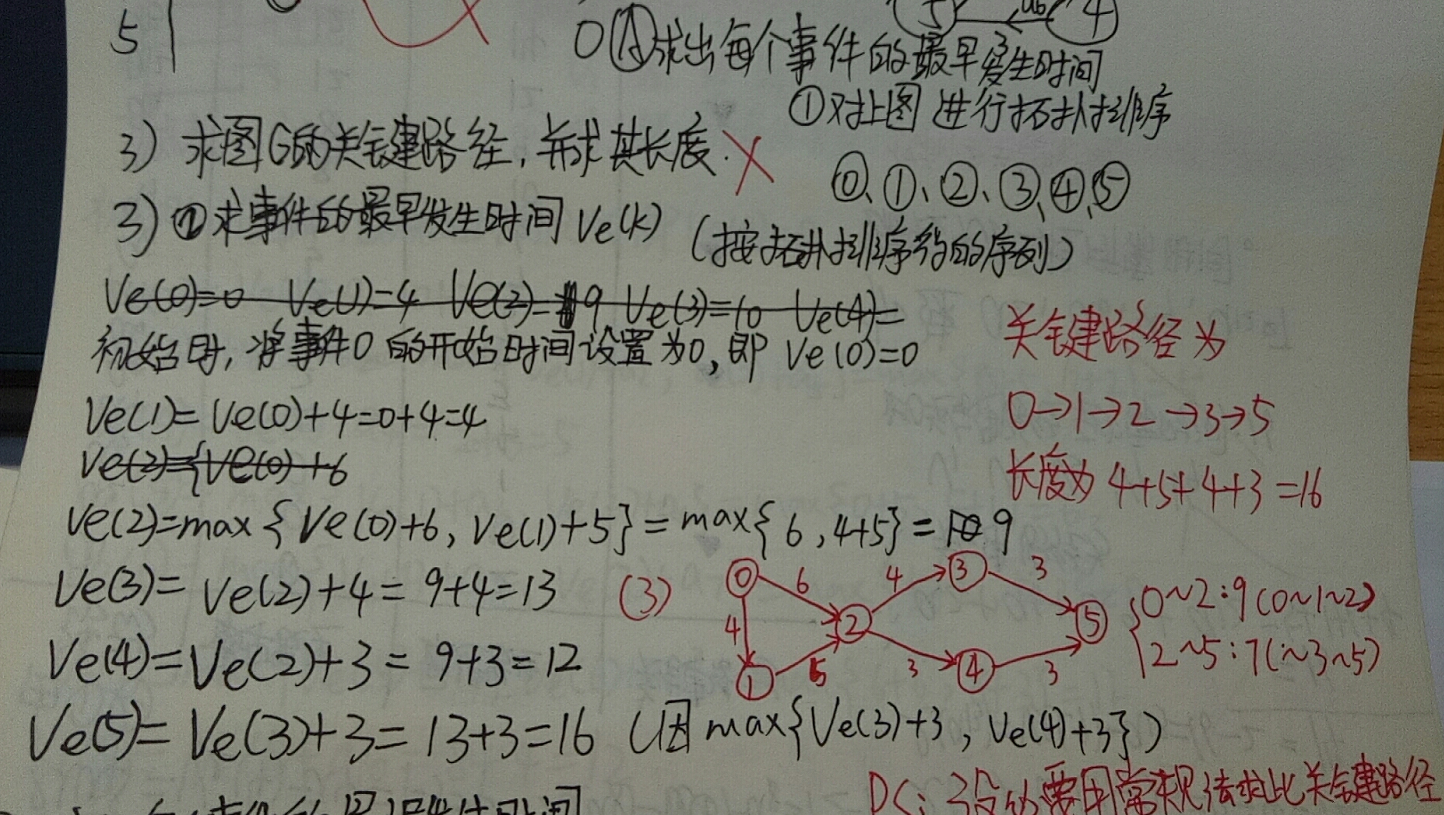 5
5 4
a6
0 ①求出每个事件的最早发生时间
①对上图 进行拓扑排序
3) 求图G的关键路径,并求其长度. ×
⓪、①、②、③、④、⑤
3) ①求事件的最早发生时间 Ve(k) (按拓扑排序后的序列)
Ve(0)=0 Ve(1)=4 Ve(2)=9 Ve(3)=10 Ve(4)=
初始时,将事件0的开始时间设置为0,即 Ve(0)=0
关键路径为
Ve(1)=Ve(0)+4=0+4=4
0→1→2→3→5
Ve(2)={Ve(0)+6
长度为 4+5+4+3=16
Ve(2)=max{Ve(0)+6, Ve(1)+5}=max{6,4+5}=9
Ve(3)=Ve(2)+4=9+4=13
(3)
⓪ 6 4 ③ 3
4 ② ⑤
① 5 3 ④ 3
{0~2:9(0~1~2)
2~5:7(~3~5)
Ve(4)=Ve(2)+3=9+3=12
Ve(5)=Ve(3)+3=13+3=16 (因max{Ve(3)+3, Ve(4)+3})
要用常规法求此关键路径